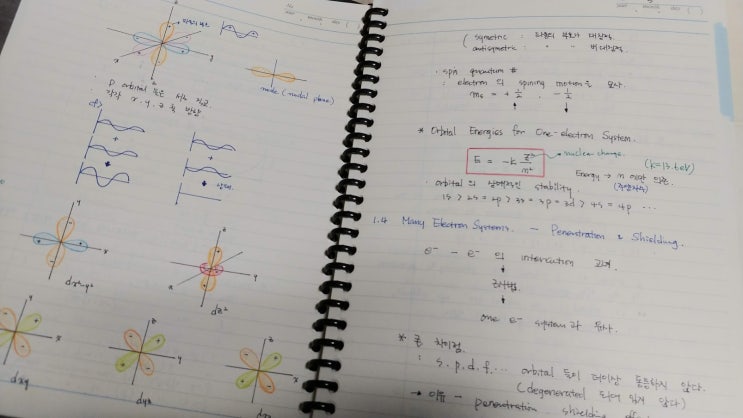 파동의 부호
y
x
node (nodal plane)
· p orbital 들은 서로 직교
각각 x, y, z 축 방향
cf)
+
+
+
상쇄
y
x
dx²-y²
z
y
x
dz²
y
x
dxy
z
y
dyz
z
x
( symetric : 파동의 부호가 대칭적
antisymetric : " " 비대칭적
· spin quantum #
: electron의 spining motion을 묘사
ms = + 1/2 , - 1/2
* Orbital Energies for One-electron System.
E = -k Z²/n²
nuclear charge.
(k=13.6eV)
Energy → n 에만 의존
(주양자수)
· orbital의 상대적인 stability.
1s > 2s = 2p > 3s = 3p = 3d > 4s = 4p ...
1.4 Many Electron Systems. - Penetration & Shielding.
e⁻ - e⁻ 의 interaction 고려.
↓
근사법.
↓
one e⁻ system과 유사.
* 큰 차이점.
: s, p, d, f, ... orbital 들이 더이상 동등하지 않다.
(degenerated 되어 있지 않다)
→ 이유 - penetration shielding eff